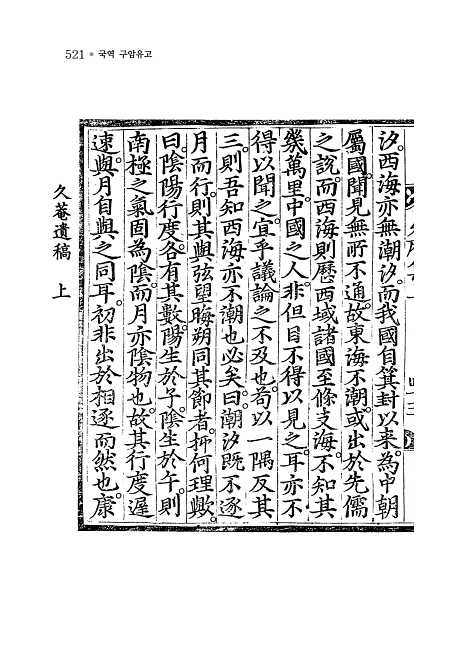 521 ● 국역 구암유고
汐。西海亦無潮汐。而我國自箕封以来。為中朝
屬國。聞見無所不通。故東海不潮。或出於先儒
之說。而西海則歷西域諸國至條支海。不知其
幾萬里。中國之人。非但目不得以見之。耳亦不
得以聞之。宜乎議論之不及也。苟以一隅反其
三。則吾知西海亦不潮也必矣。曰。潮汐旣不逐
月而行。則其與弦望晦朔同其節者。抑何理歟。
曰。陰陽行度。各有其數。陽生於子。陰生於午。則
南極之氣固為陰。而月亦陰物也。故其行度遲
速與月自與之同耳。初非出於相逐而然也。康
久菴遺稿 上